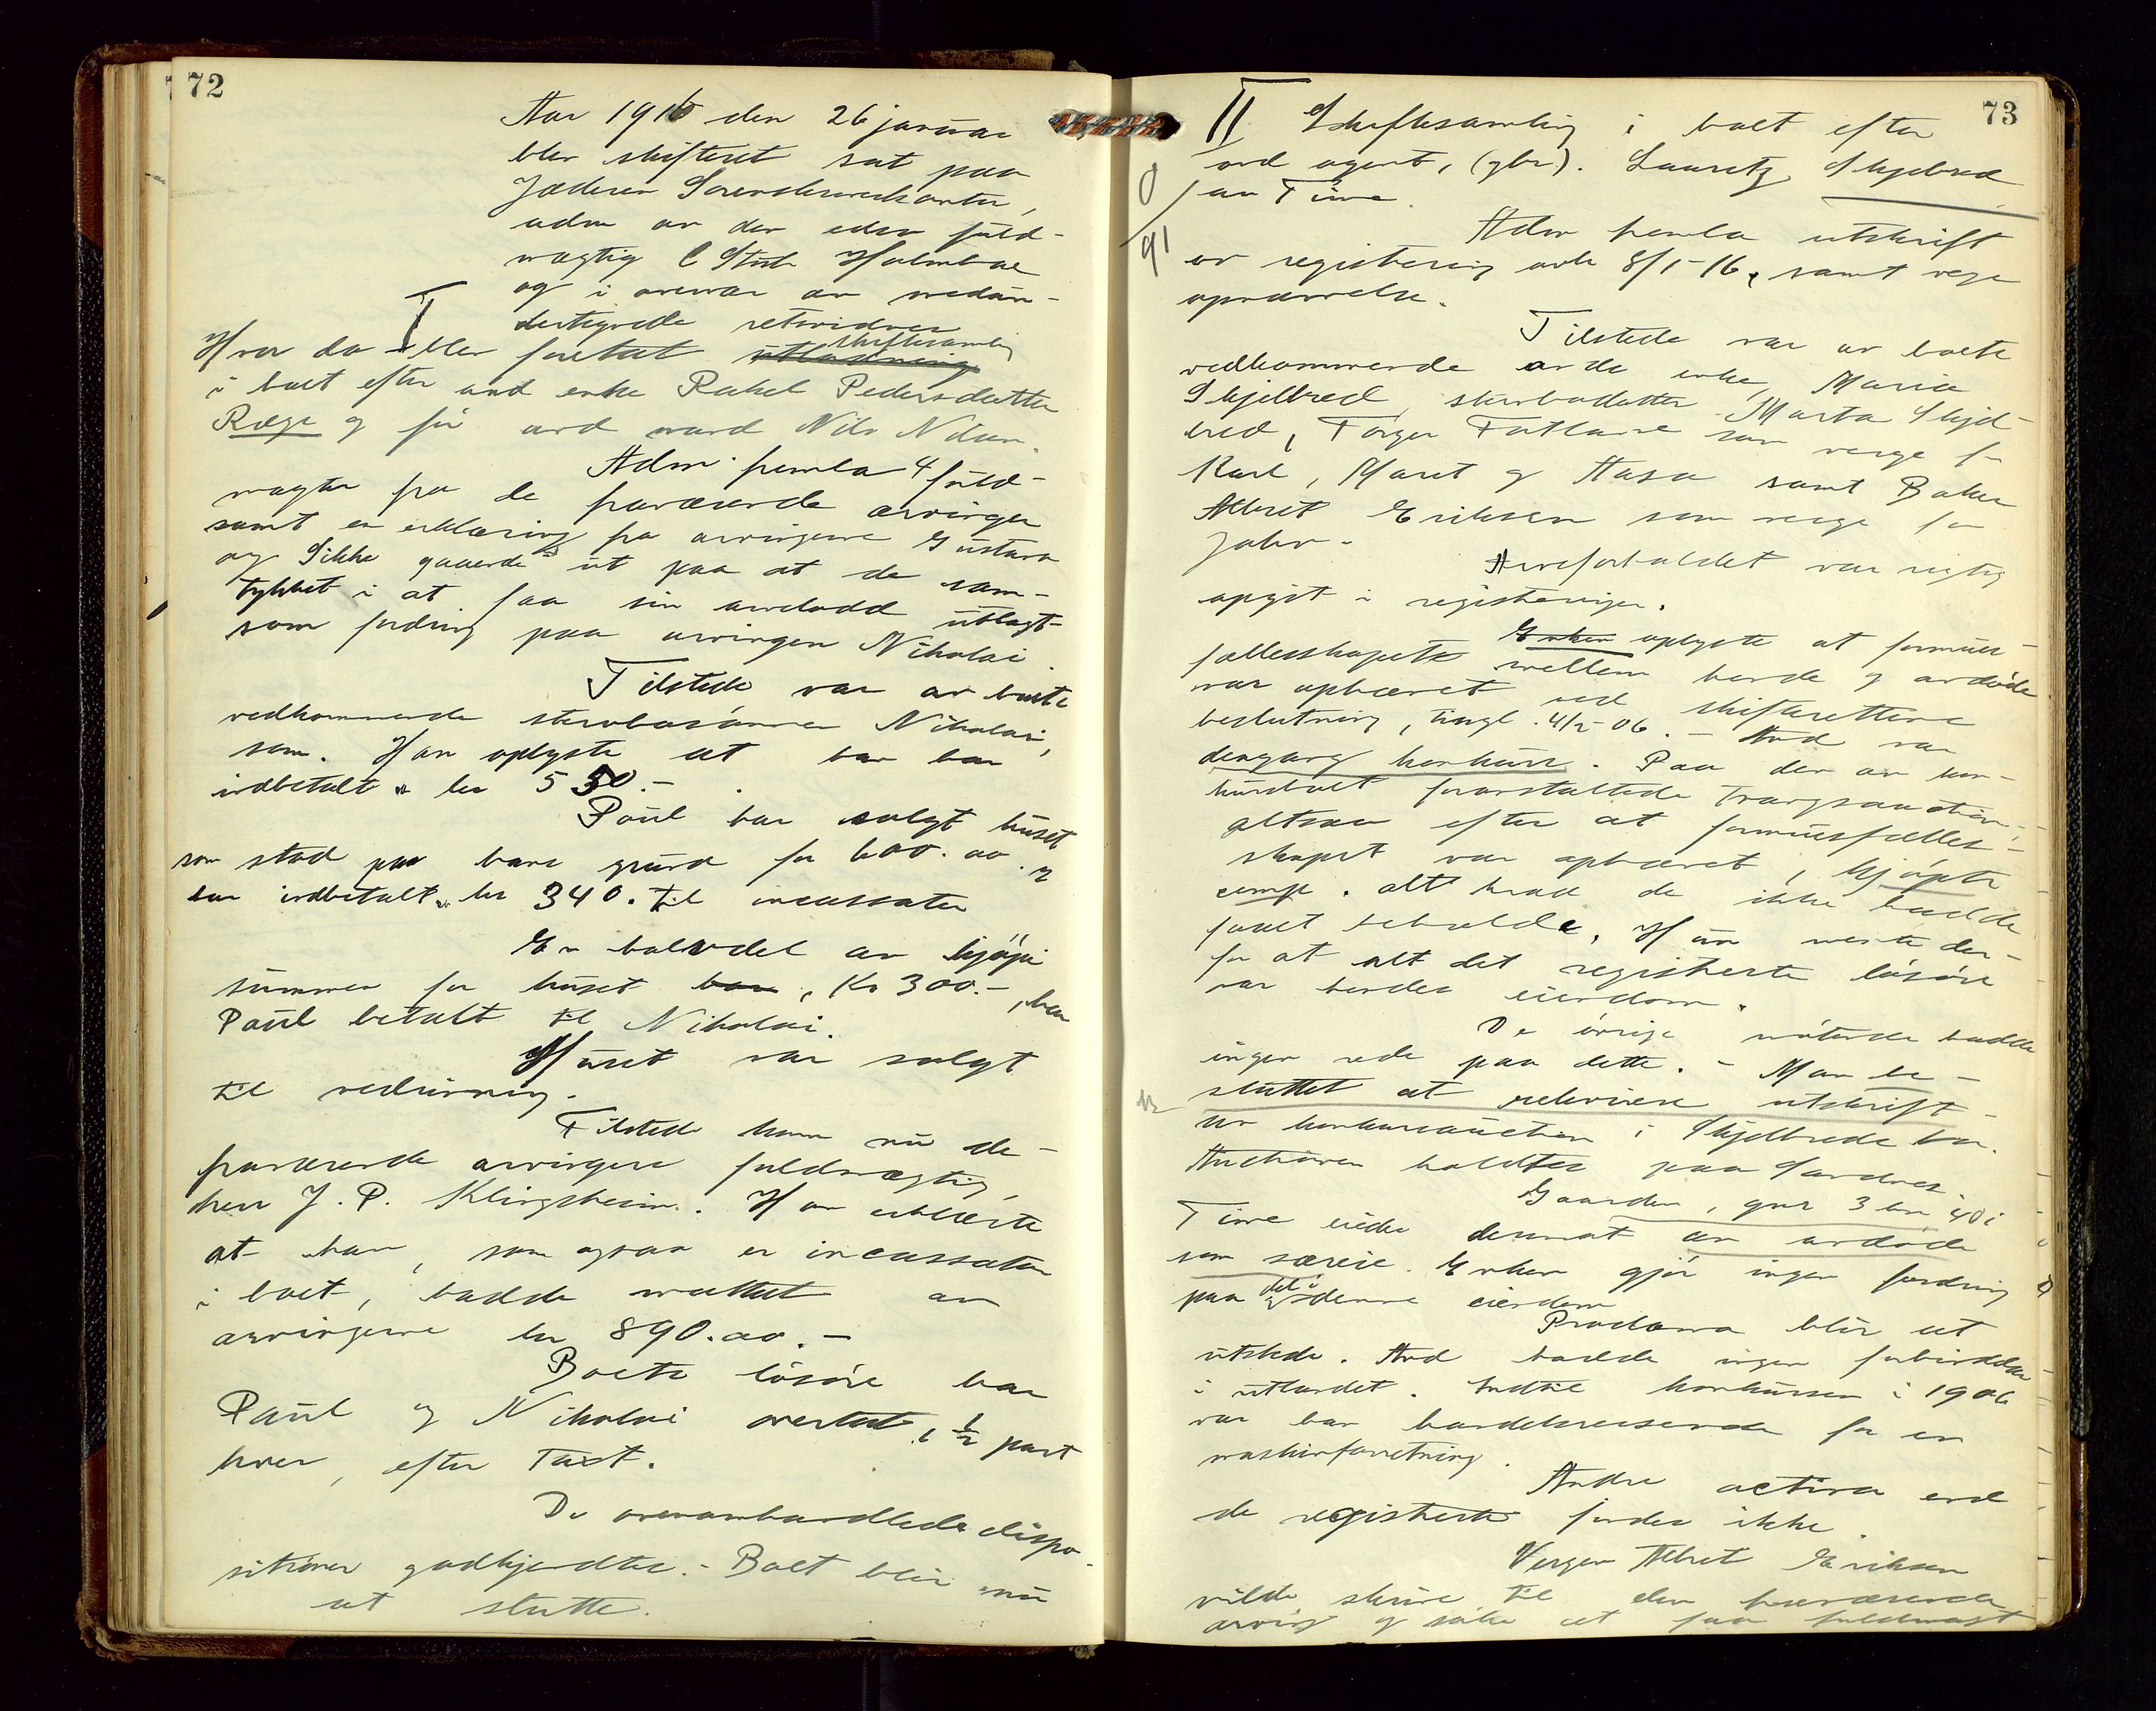 72
Aar 1916 den 26 januar
blev skifteret sat paa
Jæderen Sorenskriverkontor,
adm av den edsv fuld-
mægtig C Stub Holmboe
og i overvær av medun-
dertegnede retsvidner
I
Hvor da blev foretat utlodning skiftesamling
i boet efter avd enke Rakel Pedersdatter
Rege og før avd mand Nils Nilsen.
Adm. fremla 4 fuld-
magter fra de fraværende arvinger
samt en erklæring fra arvingerne Gustava
og Sikke gaaende ut paa at de sam-
tykket i at faa sin arvelodd utlagt
som fordring paa arvingen Nikolai.
Tilstede var av boets
vedkommende stervbosønnen Nikolai,
som. Han oplyste at han har
indbetalt kr 550.-
Paul har solgt huset
som stod paa bare grund for 600.00 og
har indbetalt kr 340. til incassator
En halvdel av kjøpe
summen for huset har, Kr 300.-, har
Paul betalt til Nikolai.
Huset var solgt
til nedrivning.
Tilstede kom nu de
fraværende arvingers fuldmægtig,
herr J. P. Klingsheim. Han erklærte
at han, som ogsaa er incassator
i boet, hadde mottat av
arvingerne kr 890.00.-
Boets løsøre har
Paul og Nikolai overtat, 1/2 part
hver, efter Taxt.
De ovenomhandlede dispo-
sitioner godkjendtes.- Boet blir nu
at slutte.
73
II Skiftesamling i boet efter
avd agent, (gbr). Lauretz Skjelbred
av Time.
0/91
Adm fremla utskrift
av registrering avh 8/1-16, samt verge
opnævnelse.
Tilstede var av boets
vedkommende avdødes enke, Maria
Skjelbred, stervbodatter Marta Skjel-
bred, Torger Fotland som verge for
Karl, Maret og Aasa samt Baker
Albret Eriksen som verge for
John.-
Arveforholdet var rigtig
opgit i registreringen.
Enken oplyste at formues-
fællesskapet mellem hende og avdøde
var ophævet ved skifterettens
beslutning, tingl. 4/2-06.- Avd var
dengang konkurs. Paa den av kon-
kursboet foranstaltede tvangsauction,
altsaa efter at formuesfælles-
skapet var ophævet, kjøpte
comp. alt hvad de ikke hadde
faaet beholde. Hun mente der-
for at alt det registrerte løsøre
var hendes eiendom.
De øvrige møtende hadde
ingen rede paa dette.- Man be-
sluttet at rekvirere utskrift
av konkursauction i Skjelbreds bo.
Auctionen holdtes paa Sandnes.
Gaarden, gnr 3 bnr 40 i
Time eiedes derimot av avdøde
som særeie. Enken gjør ingen fordring
paa del i denne eiendom
Proclama blir at
utstede. Avd hadde ingen forbindelser
i utlandet. Indtil konkursen i 1906
var han handelsreisende for en
maskinforretning.
Andre activa end
de registrerte findes ikke.
Vergen Albret Eriksen
vilde skrive til den fraværende
arving og søke at faa fuldmagt